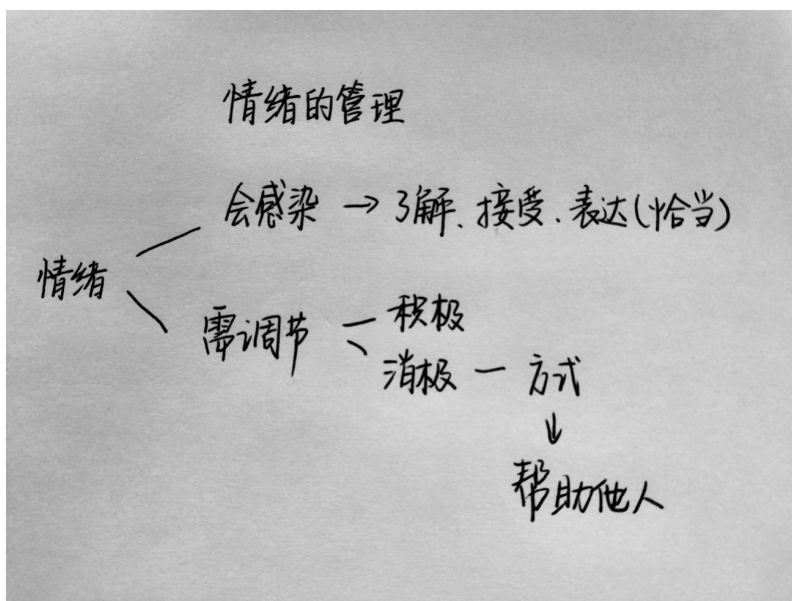 情绪的管理
会感染 → 了解、接受、表达(恰当)
情绪
需调节
积极
消极 — 方式
↓
帮助他人